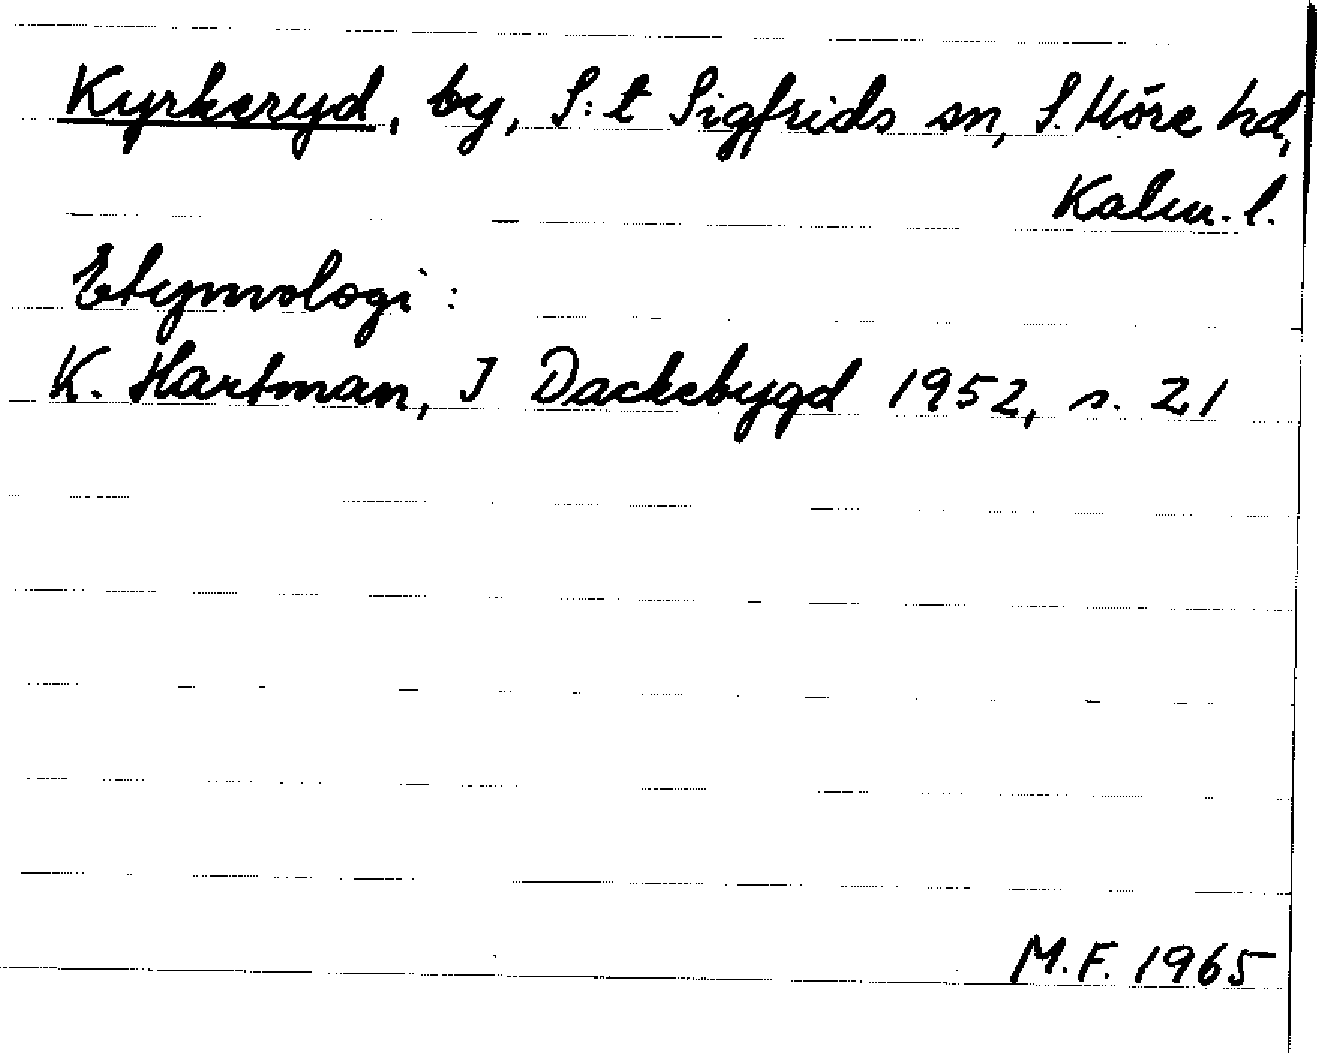 Kyrkeryd, by, S:t Sigfrids sn, S. Möre hd,
Kalm. l.
Etymologi:
K. Hartman, I Dackebygd 1952, s. 21
M.F. 1965